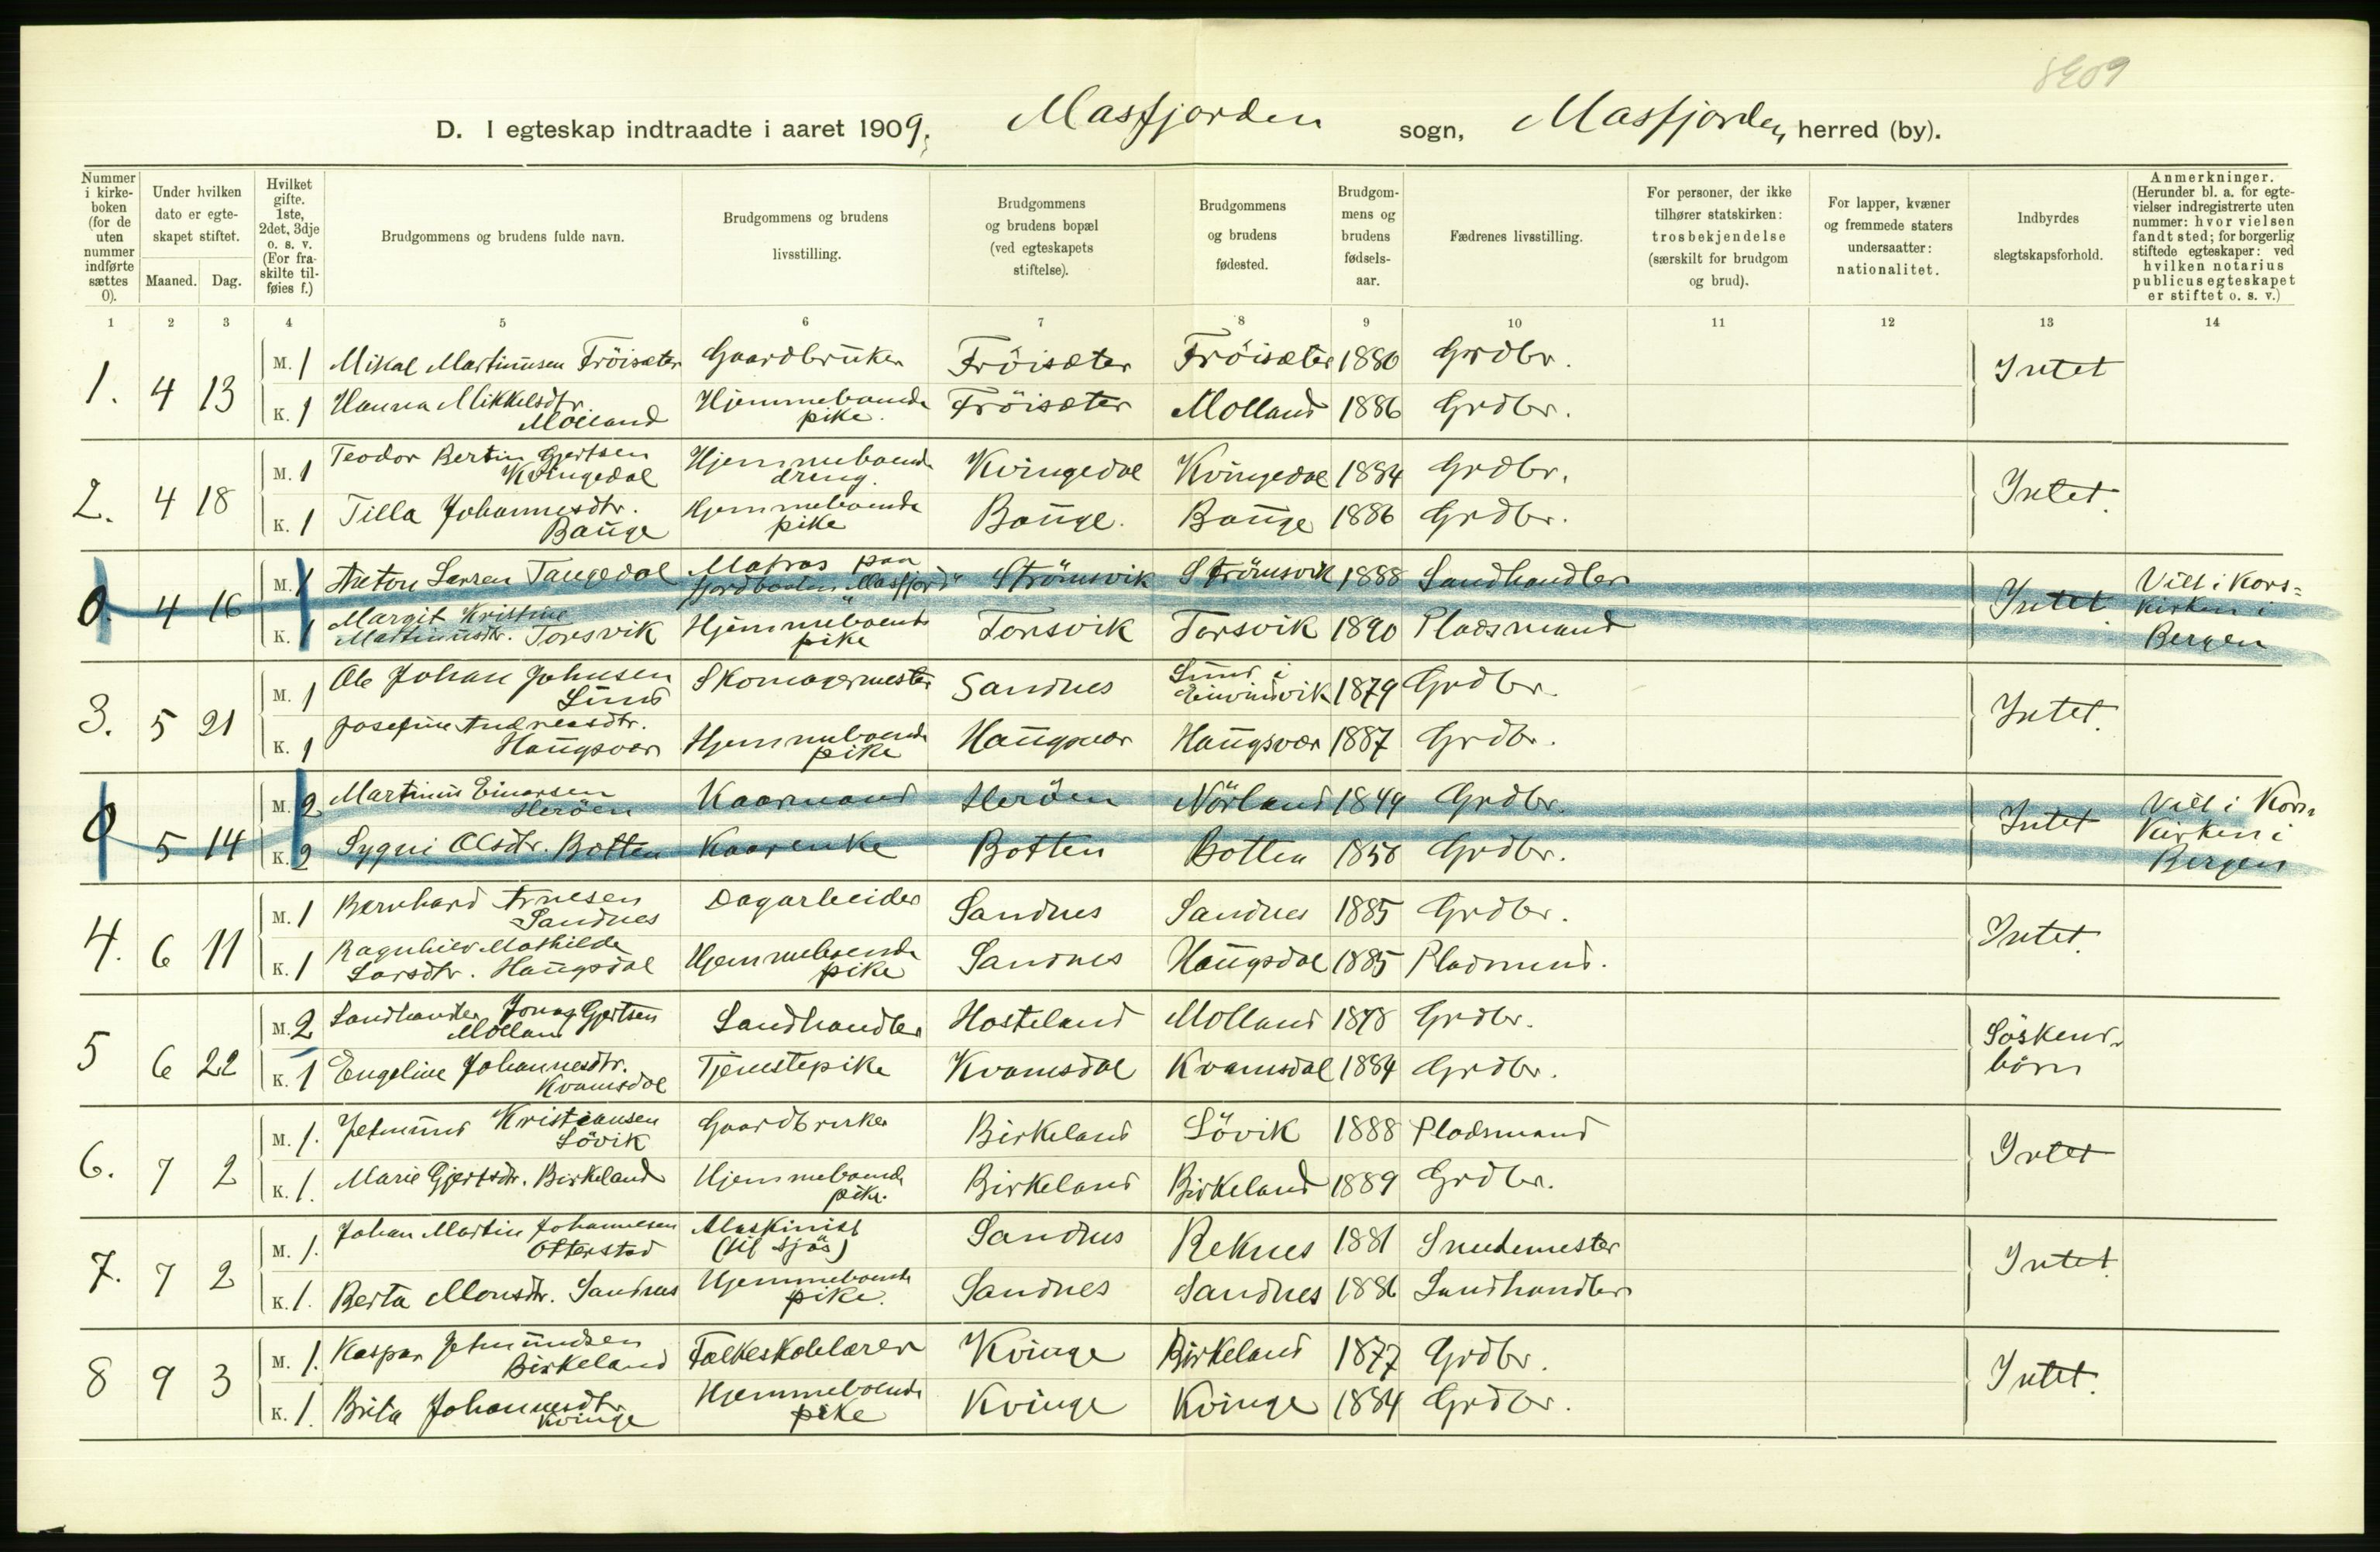 8209
D. I egteskap indtraadte i aaret 1909, Masfjorden sogn, Masfjorden herred (by).
Nummer i kirkeboken (for de uten nummer indførte sættes 0). | Under hvilken dato er egteskapet stiftet. Maaned. Dag. | Hvilket gifte. 1ste, 2det, 3dje o. s. v. (For fraskilte tilføies f.) | Brudgommens og brudens fulde navn. | Brudgommens og brudens livsstilling. | Brudgommens og brudens bopæl (ved egteskapets stiftelse). | Brudgommens og brudens fødested. | Brudgommens og brudens fødselsaar. | Fædrenes livsstilling. | For personer, der ikke tilhører statskirken: trosbekjendelse (særskilt for brudgom og brud). | For lapper, kvæner og fremmede staters undersaatter: nationalitet. | Indbyrdes slegtskapsforhold. | Anmerkninger. (Herunder bl. a. for egtevielser indregistrerte uten nummer: hvor vielsen fandt sted; for borgerlig stiftede egteskaper: ved hvilken notarius publicus egteskapet er stiftet o. s. v.)
1 2 3 4 5 6 7 8 9 10 11 12 13 14
1. 4 13 M. 1 Mikal Martinusen Fröisæter Gaardbruker Fröisæter Fröisæter 1880 Grdbr. Intet
K. 1 Hanna Mikkelsdtr. Molland Hjemmeboende pike. Fröisæter Molland 1886 Grdbr.
2. 4 18 M. 1 Teodor Bertin Gjertsen Kvingedal Hjemmeboende dreng. Kvingedal Kvingedal 1884 Grdbr. Intet.
K. 1 Tilla Johannesdtr. Bauge Hjemmeboende pike Bauge. Bauge 1886 Grdbr.
0. 4 16 M. 1 Anton Larsen Tangedal Matros paa fjordbaaten "Masfjord" Strömsvik Strömsvik 1888 Landhandler Intet. Viet i Kors=
kirken i
Bergen
K. 1 Margit Kristine Martinusdtr. Torsvik Hjemmeboende pike Torsvik Torsvik 1890 Pladsmand
3. 5 21 M. 1 Ole Johan Johnsen Lund Skomagermester Sandnes Lund i Eivindvik 1879 Grdbr. Intet.
K. 1 Josefine Andreasdtr. Haugsvær Hjemmeboende pike Haugsvær Haugsvær 1887 Grdbr.
0 5 14 M. 2 Martinus Einarsen Heröen Kaarmand Heröen Nörland 1849 Grdbr. Intet Viet i Kors
kirken i
Bergen
K. 2 Sygni Olsdtr. Botten Kaarenke Botten Botten 1858 Grdbr.
4. 6 11 M. 1 Bernhard Arnesen Sandnes Dagarbeider Sandnes Sandnes 1885 Grdbr. Intet.
K. 1 Ragnhild Mathilde Larsdtr. Haugsdal Hjemmeboende pike Sandnes Haugsdal 1885 Pladsmand.
5 6 22 M. 2 Landhandler Jonas Gjertsen Molland Landhandler Hosteland Molland 1878 Grdbr. Söskend-
börn
K. 1 Engeline Johannesdtr. Kvamsdal Tjenestepike Kvamsdal Kvamsdal 1884 Grdbr.
6. 7 2 M. 1. Jetmund Kristiansen Lövik Gaardbruker Birkeland Lövik 1888 Pladsmand Intet
K. 1. Marie Gjertsdtr. Birkeland Hjemmeboende pike. Birkeland Birkeland 1889 Grdbr.
7. 7 2 M. 1. Johan Martin Johannesen Otterstad Maskinist (til sjös) Sandnes Reknes 1881 Smedemester Intet.
K. 1. Berta Monsdtr. Sandnes Hjemmeboende pike. Sandnes Sandnes 1886 Landhandler
8 9 3 M. 1. Kaspar Jetmundsen Birkeland Folkeskolelærer Kvinge Birkeland 1877 Grdbr. Intet.
K. 1. Brita Johannesdtr. Kvinge Hjemmeboende pike Kvinge Kvinge 1884 Grdbr.